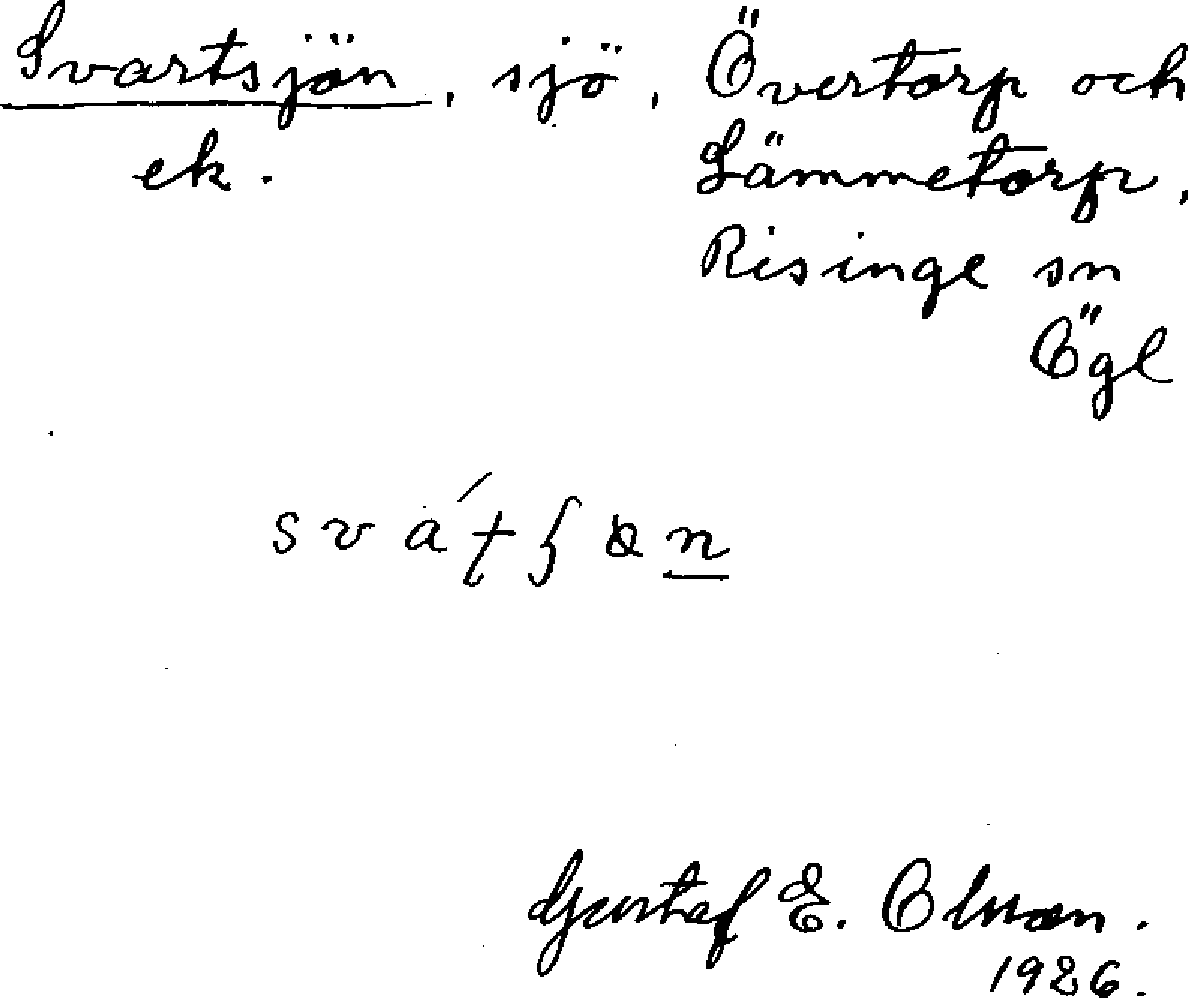 Svartsjön, sjö, Övertorp och
ek. Lämmetorp,
Risinge sn
Ögl
Gustaf E. Olsson.
1926.